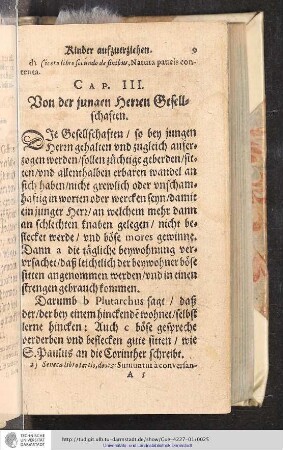 Kinder aufzuerziehen. 9
d) Cicero libro secundo de finibus, Natura paucis con-
tenta.
CAP. III.
Von der jungen Herren Gesell-
schaften.
DIe Gesellschaften / so bey jungen
Herrn gehalten vnd zugleich aufer-
zogen werden / sollen züchtige geberden / sit-
ten / vnd allenthalben erbaren wandel an
sich haben / nicht grewlich oder vnscham-
haftig in worten oder wercken seyn / damit
ein junger Herr / an welchem mehr dann
an schlechten knaben gelegen / nicht be-
flecket werde / vnd böse mores gewinne.
Dann a die tägliche beywohnung ver-
vrsachet / daß leichtlich der beywohner böse
sitten angenommen werden / vnd in einen
strengen gebrauch kommen.
Darumb b Plutarchus sagt / daß
der / der bey einem hinckendē wohnet / selbst
lerne hincken: Auch c böse gespreche
verderben vnd beflecken gute sitten / wie
S. Paulus an die Corinther schreibt.
a) Seneca libro tertio, de ira: Sumuntur à conversan-
A 5
TECHNISCHE
UNIVERSITÄT
DARMSTADT
http://tudigit.ulb.tu-darmstadt.de/show/Gue-4227-01/0025
Universitäts- und Landesbibliothek Darmstadt